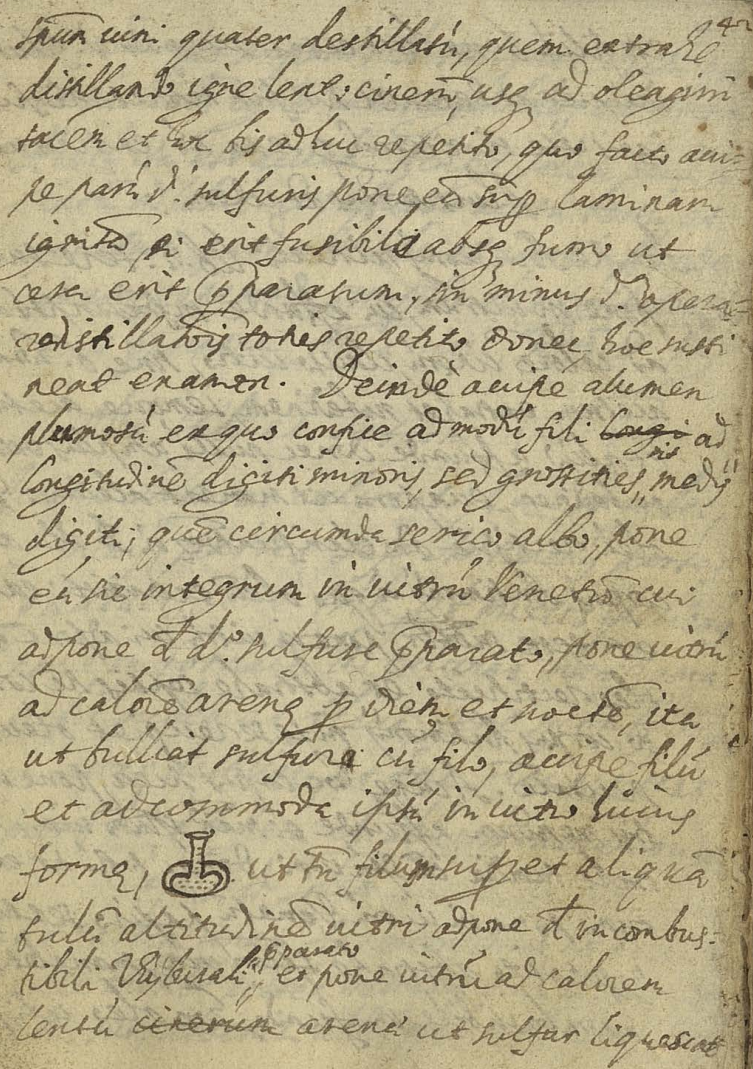 42
spūm uini quater destillatū, quem extrahe
distillando igne lento cinerū, usq ad oleaginī
facem et hoc bis adhuc repetito, quo facto acci-
pe parū d.ⁱ sulfuris pone eū sup laminam
ignitā si erit fusibile absq fumo ut
cera erit pparatum, sin minus d.
redistillatiōis toties repetito donec hoc susti
neat examen. Deinde accipe alumen
plumosū ex quo confice ad modū fili longi ad
longitudinē digiti minoris, sed grossitiei sit medij
digiti; quē circumda serico albo, pone
eū sic integrum in uitrū Venetū cui
adpone d d.º sulfure pparato, pone uitrū
ad calorē arenę p diem et noctē, ita
ut bulliat sulfur cū filo, accipe filū
et adcommoda ipsū in uitro huius
formę, ut tn̄ filum supet aliquā
tulū altitudinē uitri adpone d incombus-
tibili pparato et pone uitrū ad calorem
lentū cinerum arenę ut sulfur liquescat